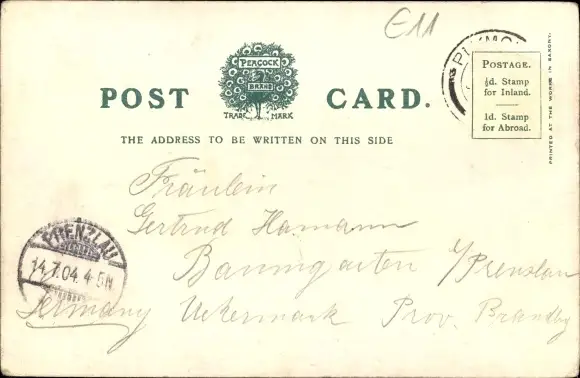 E11
POST CARD.
PEACOCK
BRAND
TRADE MARK
THE ADDRESS TO BE WRITTEN ON THIS SIDE
POSTAGE.
½d. Stamp
for Inland.
1d. Stamp
for Abroad.
PRINTED AT THE WORKS IN SAXONY.
PLYMO
Fräulein
Gertrud Hamann
Baumgarten b/Prenslau
Germany Uckermark Prov. Brandbg
PRENZLAU
14.7.04.4-5N